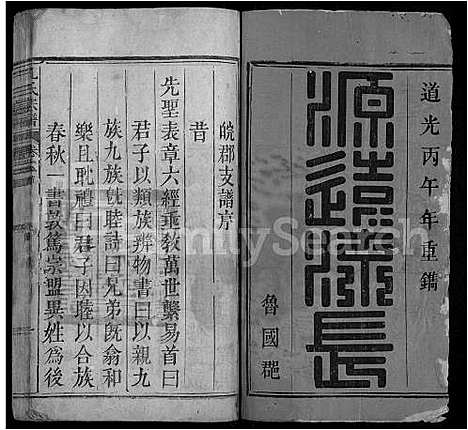 道光丙午年重鐫
源遠流長
魯國郡
皖郡支譜序
昔
先聖表章六經垂教萬世繫易首曰
君子以類族辨物書曰以親九
族九族旣睦詩曰兄弟旣翕和
樂且耽禮曰君子因睦以合族
春秋一書敦篤宗盟異姓為後
氏宗譜
FamilySearch